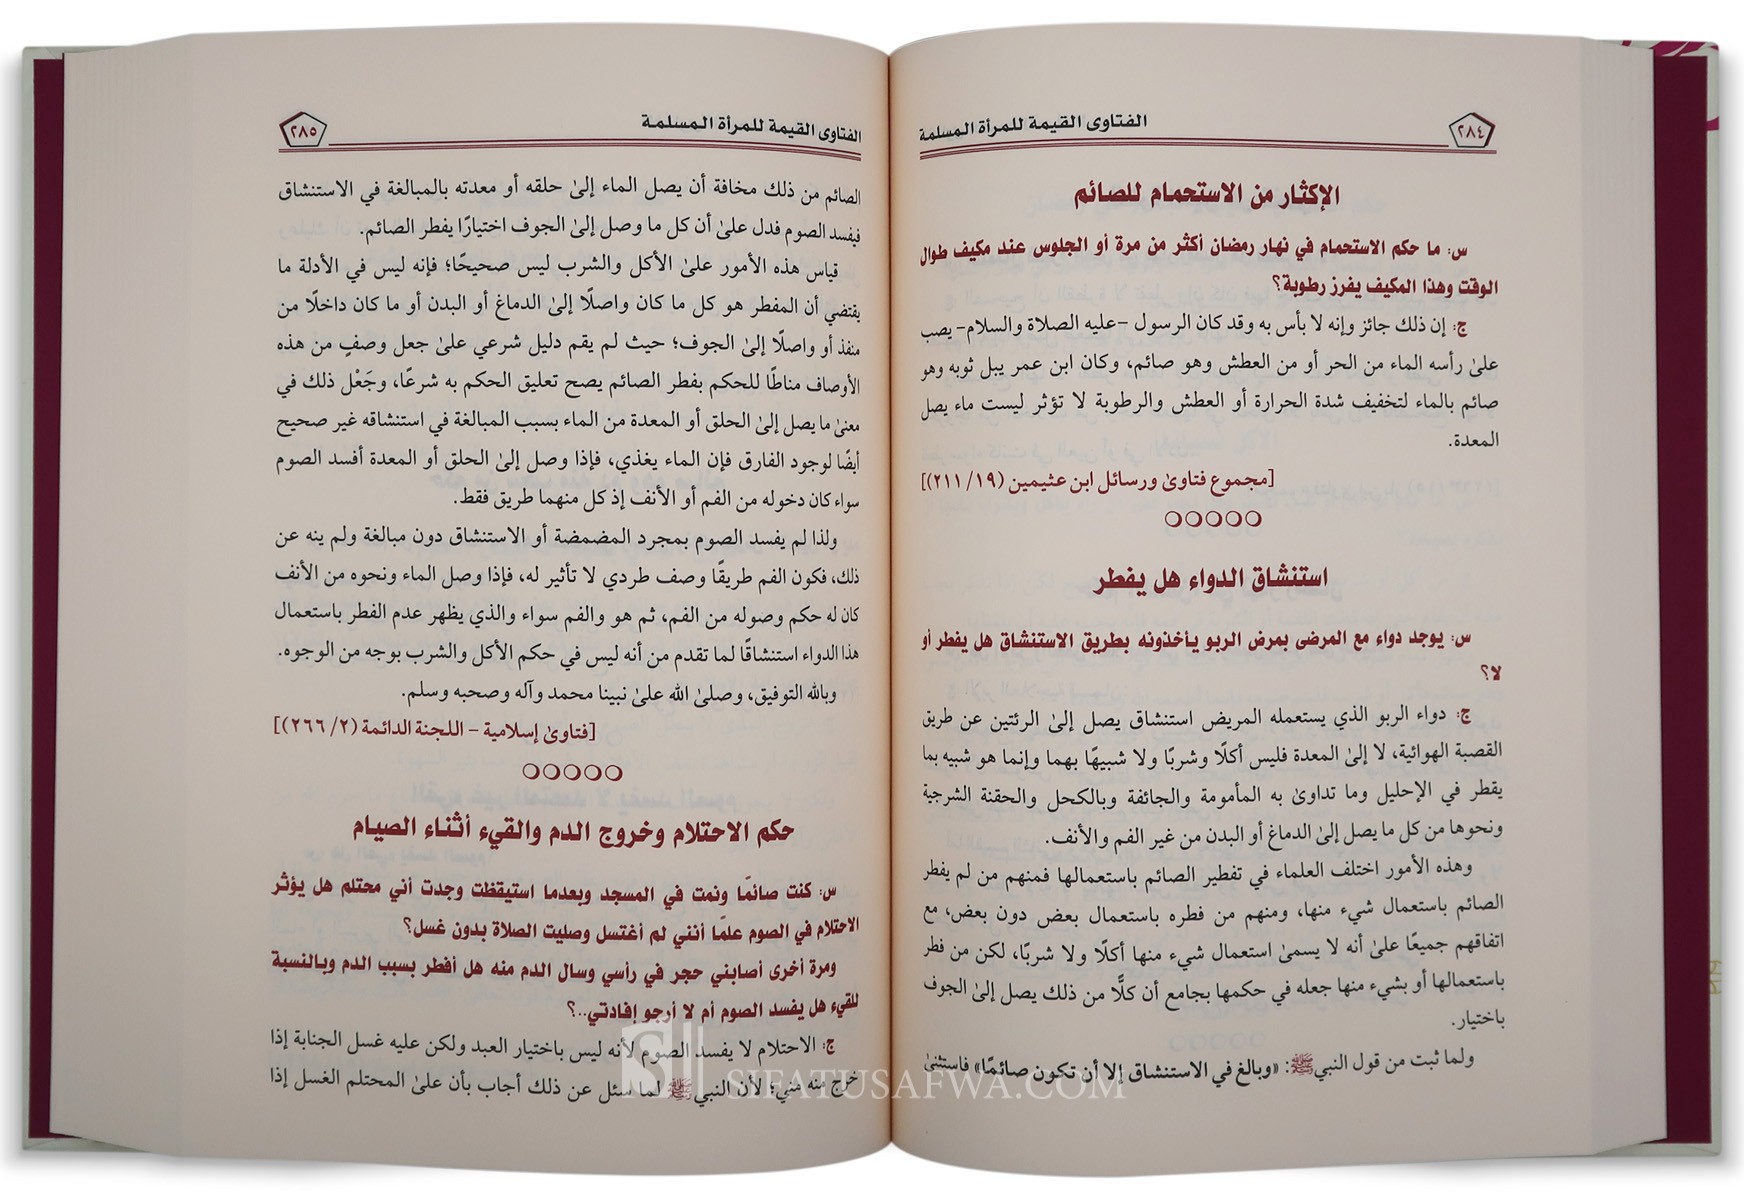 الفتاوى القيمة للمرأة المسلمة
٢٨٤
الإكثار من الاستحمام للصائم
س: ما حكم الاستحمام في نهار رمضان أكثر من مرة أو الجلوس عند مكيف طوال
الوقت وهذا المكيف يفرز رطوبة؟
ج: إن ذلك جائز وإنه لا بأس به وقد كان الرسول –عليه الصلاة والسلام– يصب
علىٰ رأسه الماء من الحر أو من العطش وهو صائم، وكان ابن عمر يبل ثوبه وهو
صائم بالماء لتخفيف شدة الحرارة أو العطش والرطوبة لا تؤثر ليست ماء يصل
المعدة.
[مجموع فتاوىٰ ورسائل ابن عثيمين (١٩/ ٢١١)]
استنشاق الدواء هل يفطر
س: يوجد دواء مع المرضى بمرض الربو يأخذونه بطريق الاستنشاق هل يفطر أو
لا؟
ج: دواء الربو الذي يستعمله المريض استنشاق يصل إلىٰ الرئتين عن طريق
القصبة الهوائية، لا إلىٰ المعدة فليس أكلًا وشربًا ولا شبيهًا بهما وإنما هو شبيه بما
يقطر في الإحليل وما تداوىٰ به المأمومة والجائفة وبالكحل والحقنة الشرجية
ونحوها من كل ما يصل إلىٰ الدماغ أو البدن من غير الفم والأنف.
وهذه الأمور اختلف العلماء في تفطير الصائم باستعمالها فمنهم من لم يفطر
الصائم باستعمال شيء منها، ومنهم من فطره باستعمال بعض دون بعض، مع
اتفاقهم جميعًا علىٰ أنه لا يسمىٰ استعمال شيء منها أكلًا ولا شربًا، لكن من فطر
باستعمالها أو بشيء منها جعله في حكمها بجامع أن كلًّا من ذلك يصل إلىٰ الجوف
باختيار.
ولما ثبت من قول النبي ﷺ: «وبالغ في الاستنشاق إلا أن تكون صائمًا» فاستثنىٰ
الفتاوى القيمة للمرأة المسلمة
٢٨٥
الصائم من ذلك مخافة أن يصل الماء إلىٰ حلقه أو معدته بالمبالغة في الاستنشاق
فيفسد الصوم فدل علىٰ أن كل ما وصل إلىٰ الجوف اختيارًا يفطر الصائم.
قياس هذه الأمور علىٰ الأكل والشرب ليس صحيحًا؛ فإنه ليس في الأدلة ما
يقتضي أن المفطر هو كل ما كان واصلًا إلىٰ الدماغ أو البدن أو ما كان داخلًا من
منفذ أو واصلًا إلىٰ الجوف؛ حيث لم يقم دليل شرعي علىٰ جعل وصفٍ من هذه
الأوصاف مناطًا للحكم بفطر الصائم يصح تعليق الحكم به شرعًا، وجَعْل ذلك في
معنىٰ ما يصل إلىٰ الحلق أو المعدة من الماء بسبب المبالغة في استنشاقه غير صحيح
أيضًا لوجود الفارق فإن الماء يغذي، فإذا وصل إلىٰ الحلق أو المعدة أفسد الصوم
سواء كان دخوله من الفم أو الأنف إذ كل منهما طريق فقط.
ولذا لم يفسد الصوم بمجرد المضمضة أو الاستنشاق دون مبالغة ولم ينه عن
ذلك، فكون الفم طريقًا وصف طردي لا تأثير له، فإذا وصل الماء ونحوه من الأنف
كان له حكم وصوله من الفم، ثم هو والفم سواء والذي يظهر عدم الفطر باستعمال
هذا الدواء استنشاقًا لما تقدم من أنه ليس في حكم الأكل والشرب بوجه من الوجوه.
وبالله التوفيق، وصلىٰ الله علىٰ نبينا محمد وآله وصحبه وسلم.
[فتاوىٰ إسلامية – اللجنة الدائمة (٢/ ٢٦٦)]
حكم الاحتلام وخروج الدم والقيء أثناء الصيام
س: كنت صائمًا ونمت في المسجد وبعدما استيقظت وجدت أني محتلم هل يؤثر
الاحتلام في الصوم علمًا أنني لم أغتسل وصليت الصلاة بدون غسل؟
ومرة أخرى أصابني حجر في رأسي وسال الدم منه هل أفطر بسبب الدم وبالنسبة
للقيء هل يفسد الصوم أم لا أرجو إفادتي..؟
ج: الاحتلام لا يفسد الصوم لأنه ليس باختيار العبد ولكن عليه غسل الجنابة إذا
خرج منه مني؛ لأن النبي ﷺ لما سئل عن ذلك أجاب بأن علىٰ المحتلم الغسل إذا
SIFATUSAFWA.COM